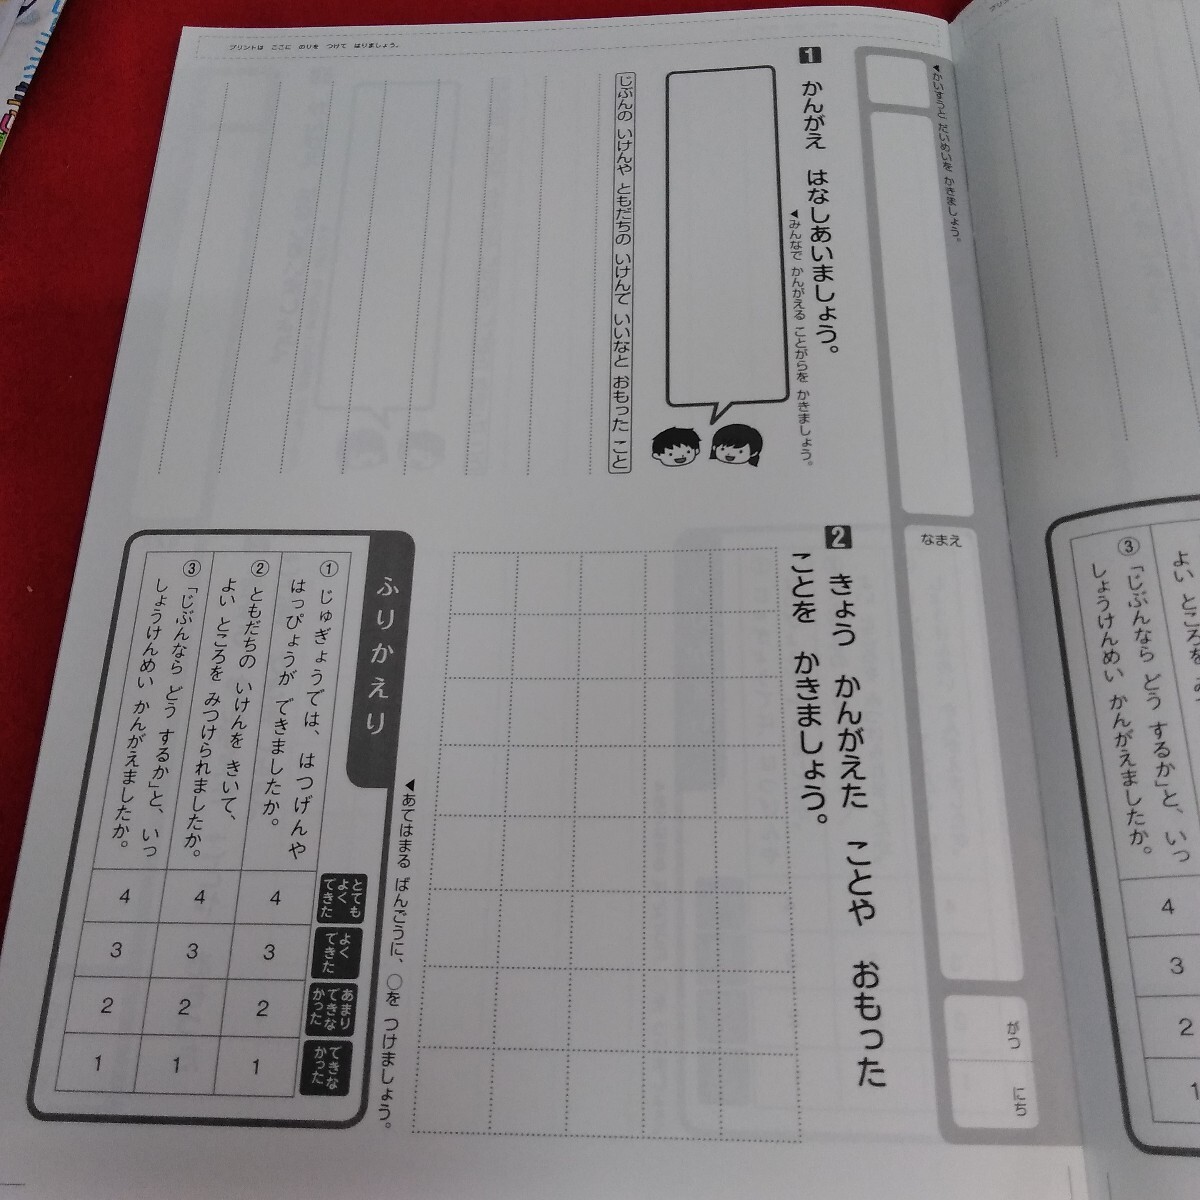 プリントは ここに のりを つけて はりましょう。
◀かいすうと だいめいを かきましょう。
なまえ
がつ
にち
1 かんがえ はなしあいましょう。
◀みんなで かんがえる ことがらを かきましょう。
じぶんの いけんや ともだちの いけんで いいなと おもった こと
2 きょう かんがえた ことや おもった
ことを かきましょう。
ふりかえり
◀あてはまる ばんごうに、○を つけましょう。
とても
よく
できた
よく
できた
あまり
できな
かった
できな
かった
① じゅぎょうでは、はつげんや
はっぴょうが できましたか。
4 3 2 1
② ともだちの いけんを きいて、
よい ところを みつけられましたか。
4 3 2 1
③ 「じぶんなら どう するか」と、いっ
しょうけんめい かんがえましたか。
4 3 2 1
よい ところを み
③ 「じぶんなら どう するか」と、いっ
しょうけんめい かんがえましたか。
4
3
2
1